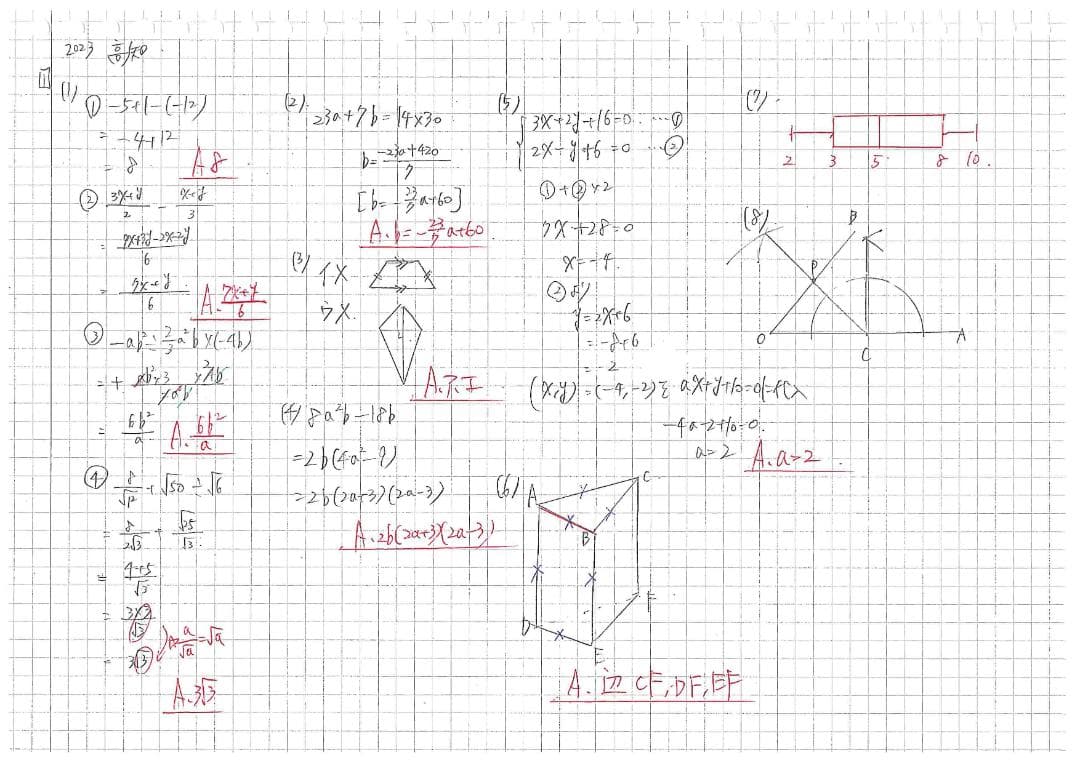 2023 高知
1
(1)
① -5+1-(-12)
= -4+12
= 8
A 8
② (3x+y)/2 - (x+y)/3
= (9x+3y-2x-2y)/6
= (7x+y)/6
A. (7x+y)/6
③ -ab² ÷ 2/3 a²b × (-4b)
= 6b²/a
A. 6b²/a
④ 8/√12 + √50 ÷ √6
= 8/2√3 + √25/√3
= (4+5)/√3
= 3×3/√3
= 3√3
a/√a = √a
A. 3√3
(2).
23a+7b=14×30
b= (-23a+420)/7
[b=-23/7 a+60]
A. b=-23/7 a+60
(3)
イ×
ウ×
A. ア, エ
(4) 8a²b-18b
=2b(4a²-9)
=2b(2a+3)(2a-3)
A. 2b(2a+3)(2a-3)
(5)
3x+2y+16=0 … ①
2x-y+6=0 … ②
①+②×2
7x+28=0
x=-4.
②より
y=2x+6
=-8+6
=-2
(x,y)=(-4,-2)を ax+y+10=0に代入
-4a-2+10=0.
a=2
A. a=2
(6)
A
C
B
D
F
E
A. 辺 CF, DF, EF
(7).
2 3 5 8 10.
(8).
B
P
O
C
A